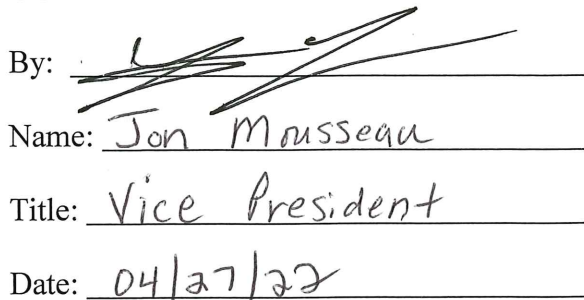 By:
Name: Jon Mousseau
Title: Vice President
Date: 04/27/22